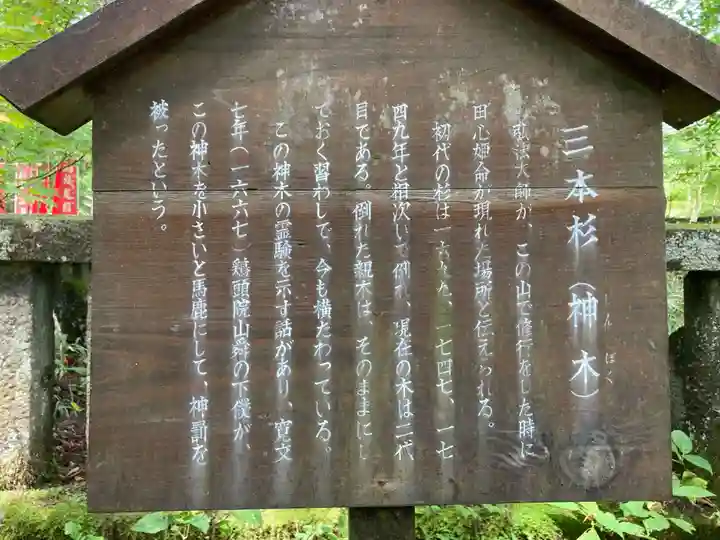 三本杉（神木）
しんぼく
弘法大師が、この山で修行をした時に
田心姫命が現れた場所と伝えられる。
初代の杉は一六九九、一七四七、一七
四九年と相次いで倒れ、現在の木は二代
目である。倒れた親木は、そのままにし
ておく習わしで、今も横たわっている。
この神木の霊験を示す話があり、寛文
七年（一六六七）鶏頭院山舜の下僕が、
この神木を小さいと馬鹿にして、神罰を
被ったという。